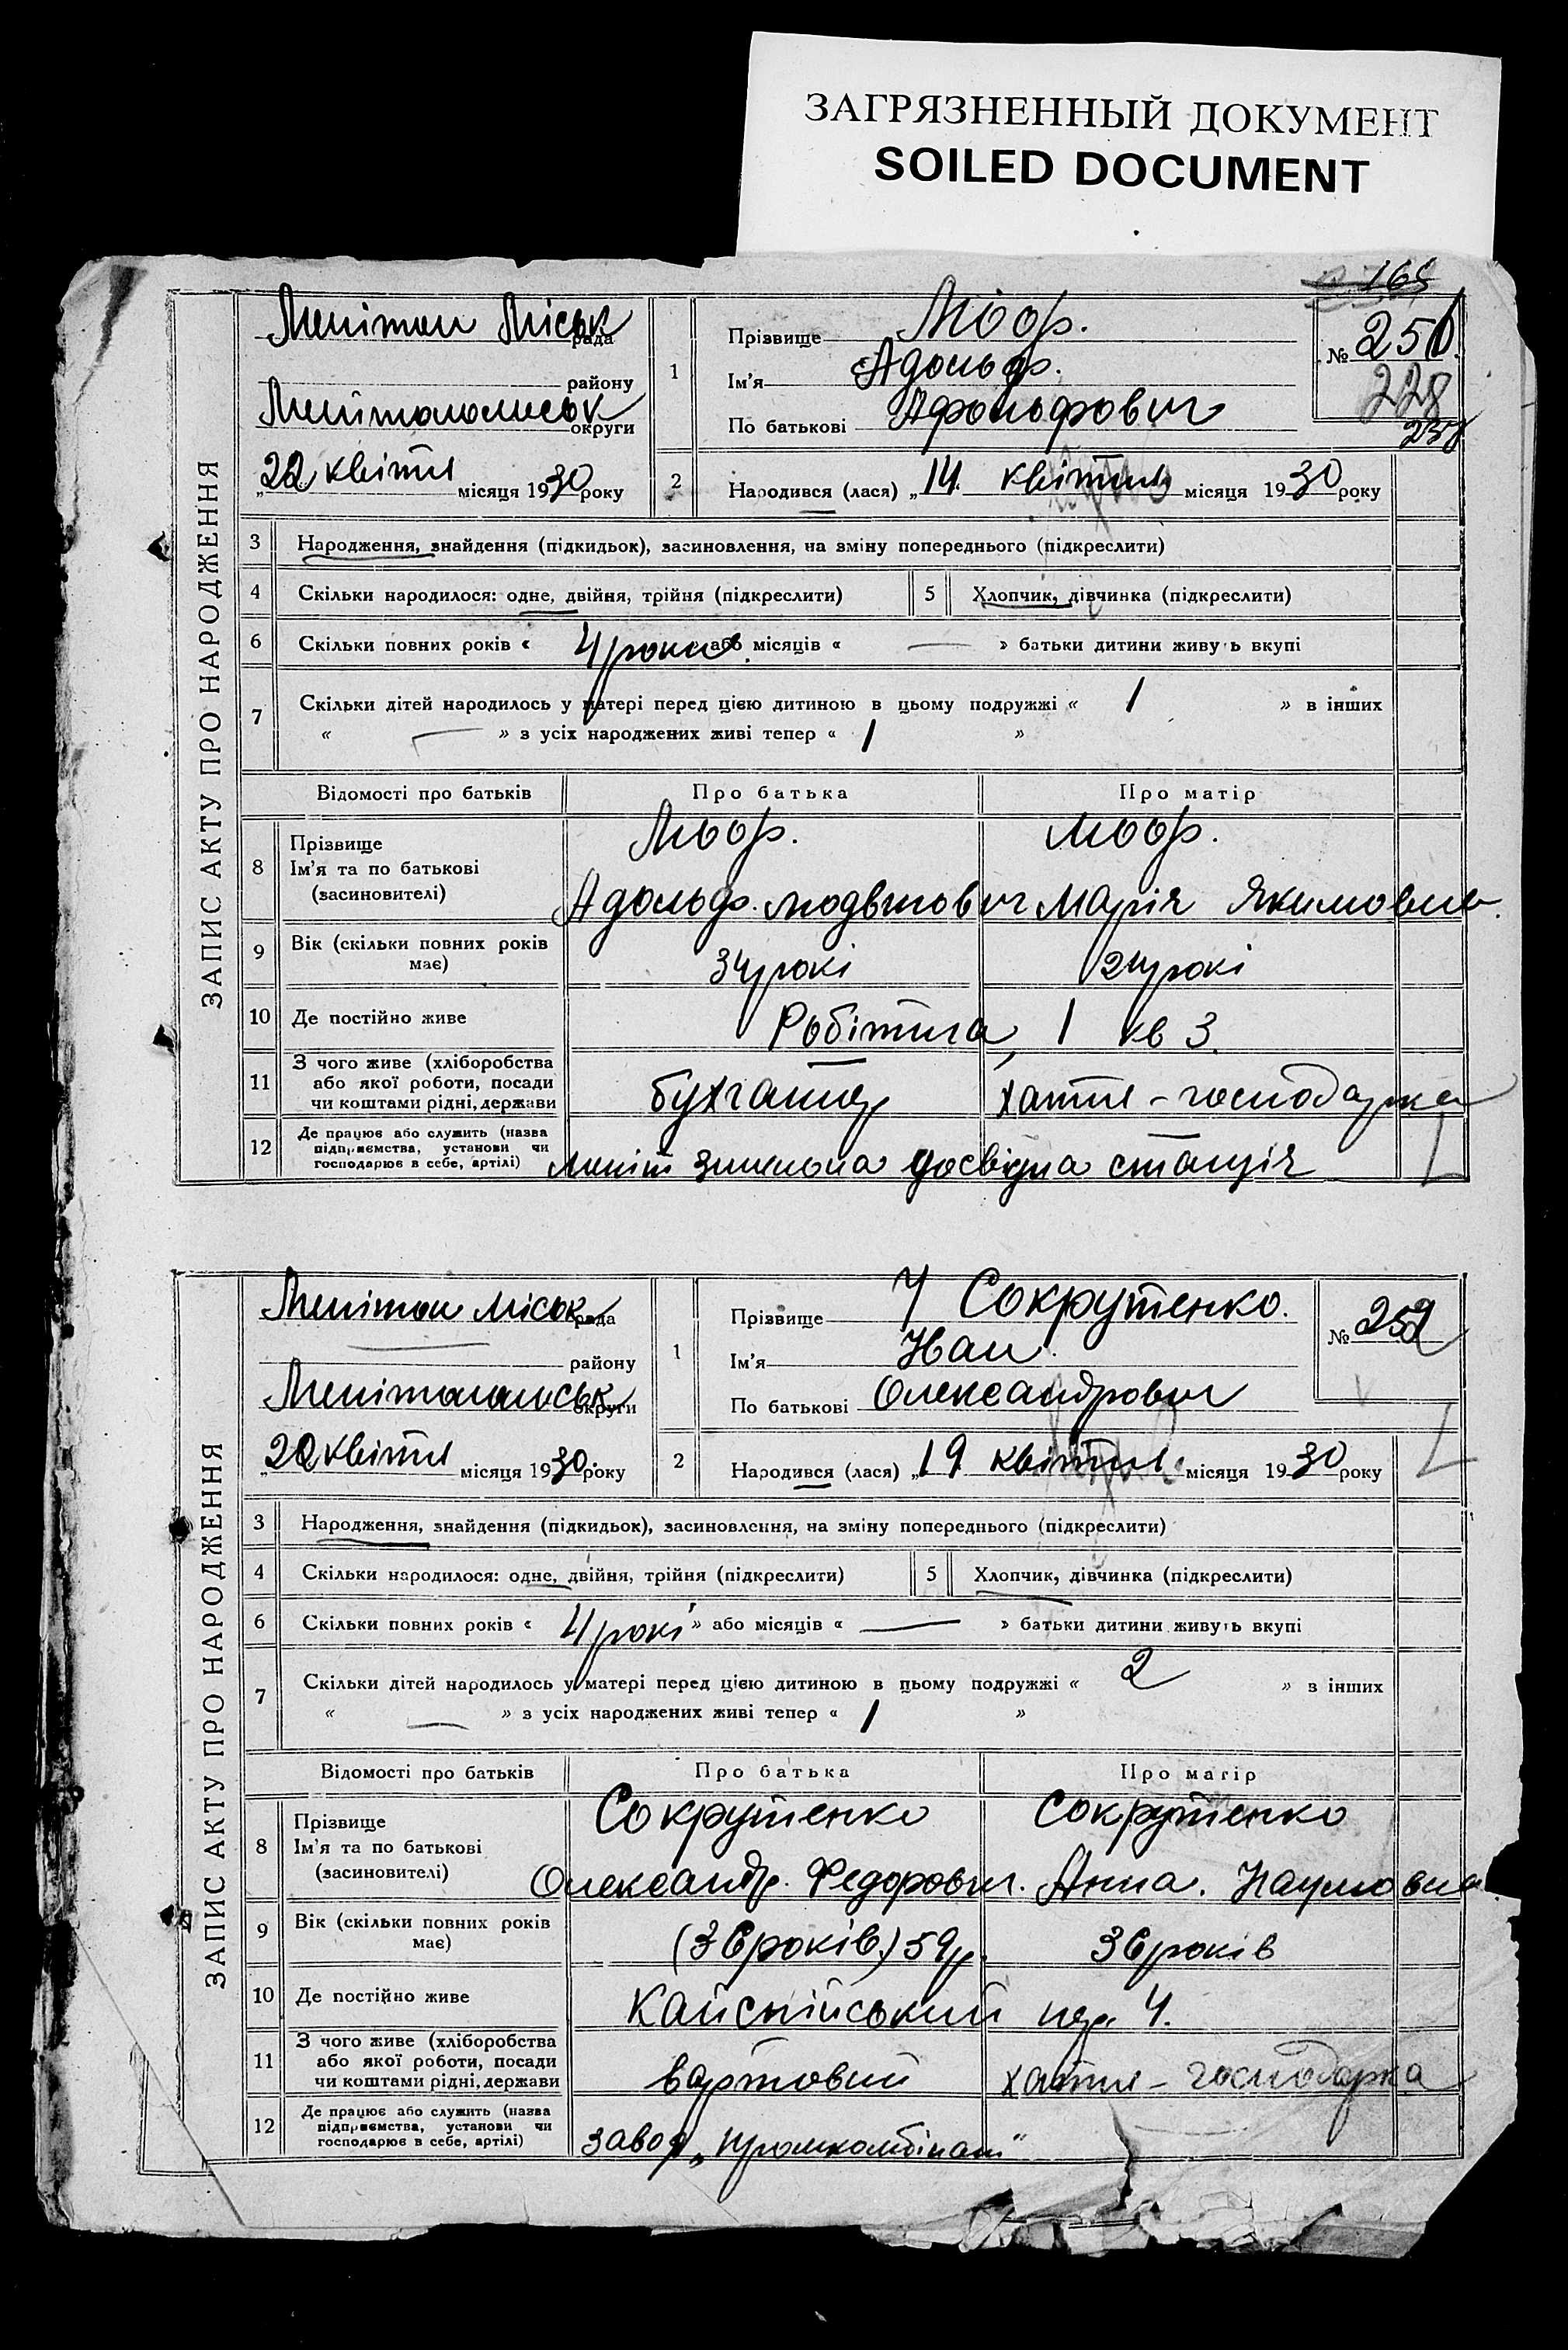 ЗАГРЯЗНЕННЫЙ ДОКУМЕНТ
SOILED DOCUMENT
165
ЗАПИС АКТУ ПРО НАРОДЖЕННЯ
Меліт Міськ рада
району
округи
22 квітня місяця 1930 року
1
Прізвище Моор.
Ім'я Адольф.
По батькові Адольфович
№ 251
228
2
Народився (лася) „14 квітня місяця 1930 року
3 Народження, знайдення (підкидьок), засиновлення, на зміну попереднього (підкреслити)
4 Скільки народилося: одне, двійня, трійня (підкреслити) 5 Хлопчик, дівчинка (підкреслити)
6 Скільки повних років « 4 роки або місяців « — » батьки дитини живуть вкупі
7 Скільки дітей народилось у матері перед цією дитиною в цьому подружжі « 1 » в інших
« — » з усіх народжених живі тепер « 1 »
Відомості про батьків Про батька Про матір
8 Прізвище Моор. Моор.
Ім'я та по батькові
(засиновителі) Адольф Людвигович Марія Якимовна
9 Вік (скільки повних років має) 34 рокі 24 рокі
10 Де постійно живе Робітича, 1 кв 3.
11 З чого живе (хліборобства
або якої роботи, посади
чи коштами рідні, держави бухгалтер хатня-господарка
12 Де працює або служить (назва
підприємства, установи чи
господарює в себе, артілі) Меліт досвідна станція
ЗАПИС АКТУ ПРО НАРОДЖЕННЯ
Меліт Міськ рада
району
округи
22 квітня місяця 1930 року
1
Прізвище Сокрутенко.
Ім'я
По батькові Олександрович
№ 252
2
Народився (лася) „19 квітня місяця 1930 року
3 Народження, знайдення (підкидьок), засиновлення, на зміну попереднього (підкреслити)
4 Скільки народилося: одне, двійня, трійня (підкреслити) 5 Хлопчик, дівчинка (підкреслити)
6 Скільки повних років « 4 рокі » або місяців « — » батьки дитини живуть вкупі
7 Скільки дітей народилось у матері перед цією дитиною в цьому подружжі « 2 » в інших
« — » з усіх народжених живі тепер « 1 »
Відомості про батьків Про батька Про матір
8 Прізвище Сокрутенко Сокрутенко
Ім'я та по батькові
(засиновителі) Олександр. Федорович. Анна. Наумовна
9 Вік (скільки повних років має) (36 років) 59 р. 36 років
10 Де постійно живе Каспійський пер. 4.
11 З чого живе (хліборобства
або якої роботи, посади
чи коштами рідні, держави вартовий хатня-господарка
12 Де працює або служить (назва
підприємства, установи чи
господарює в себе, артілі) завод „Промкомбінат"